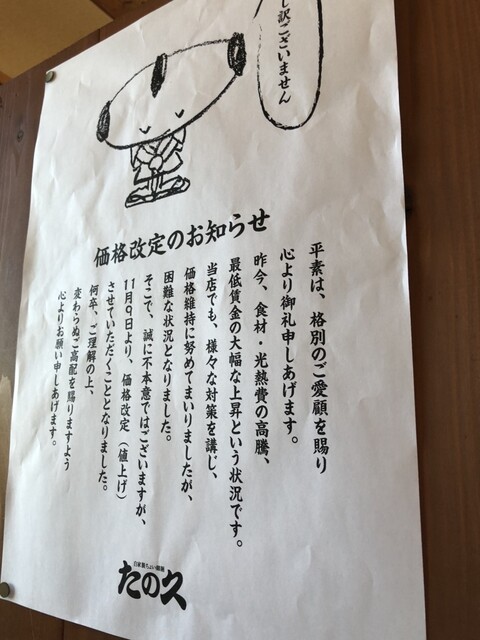 し訳ございません
価格改定のお知らせ
平素は、格別のご愛顧を賜り
心より御礼申しあげます。
昨今、食材・光熱費の高騰、
最低賃金の大幅な上昇という状況です。
当店でも、様々な対策を講じ、
価格維持に努めてまいりましたが、
困難な状況となりました。
そこで、誠に不本意ではございますが、
11月9日より、価格改定（値上げ）
させていただくこととなりました。
何卒、ご理解の上、
変わらぬご高配を賜りますよう
心よりお願い申しあげます。
たの久